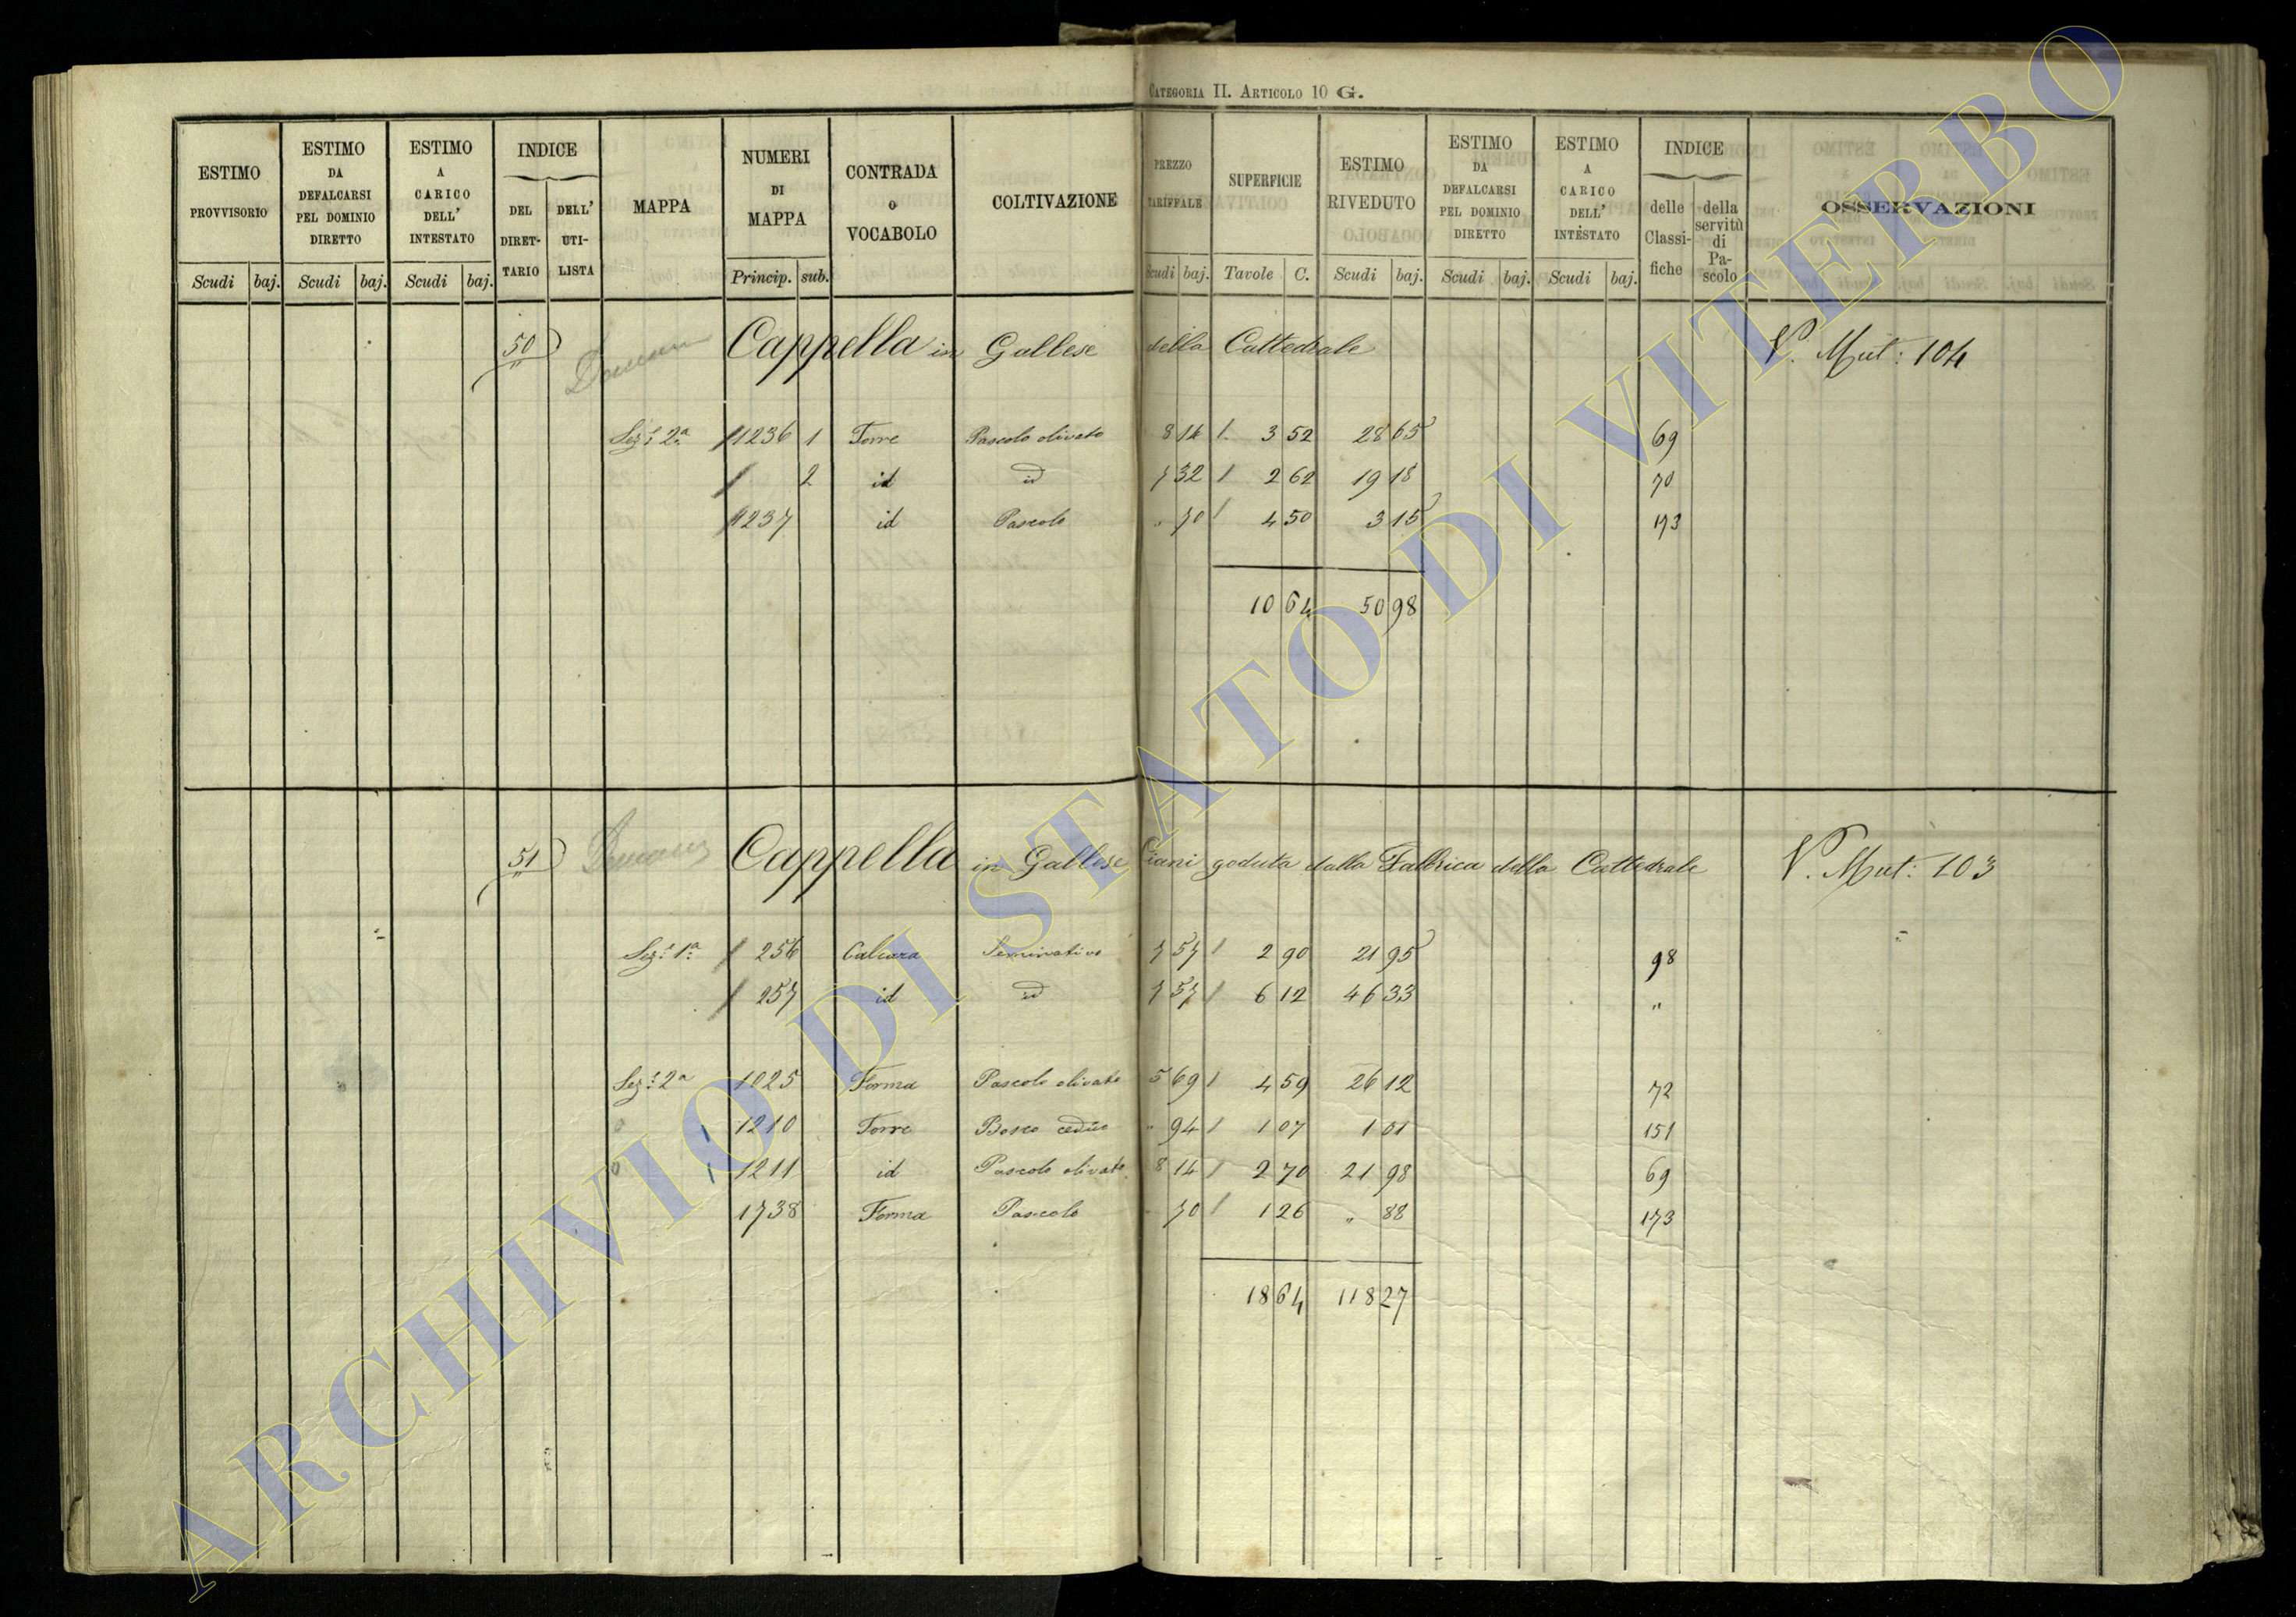 CATEGORIA II. ARTICOLO 10 G.
ESTIMO PROVVISORIO Scudi baj.
ESTIMO DA DEFALCARSI PEL DOMINIO DIRETTO Scudi baj.
ESTIMO A CARICO DELL' INTESTATO Scudi baj.
INDICE DEL DIRETTARIO DELL' UTILISTA
MAPPA
NUMERI DI MAPPA Princip. sub.
CONTRADA O VOCABOLO
COLTIVAZIONE
PREZZO TARIFFALE Scudi baj.
SUPERFICIE Tavole C.
ESTIMO RIVEDUTO Scudi baj.
ESTIMO DA DEFALCARSI PEL DOMINIO DIRETTO Scudi baj.
ESTIMO A CARICO DELL' INTESTATO Scudi baj.
INDICE delle Classifiche della servitù di Pascolo
OSSERVAZIONI
50 Cappella in Gallese della Cattedrale V. Mut: 104
Sez: 2a 1236 1 Torre Pascolo olivato 8 14 3 52 28 65 69
2 id id 7 32 2 62 19 18 70
1237 id Pascolo " 70 4 50 3 15 173
10 64 50 98
51 Cappella in Gallese Ciani goduta dalla Fabbrica della Cattedrale V. Mut: 103
Sez: 1a 256 Calcara Seminativo 7 57 2 90 21 95 98
257 id id 7 57 6 12 46 33 "
Sez: 2a 1025 Forma Pascolo olivato 5 69 4 59 26 12 72
1210 Torre Bosco ceduo " 94 1 07 1 01 151
1211 id Pascolo olivato 8 14 2 70 21 98 69
1738 Forma Pascolo " 70 1 26 " 88 173
18 64 118 27
ARCHIVIO DI STATO DI VITERBO